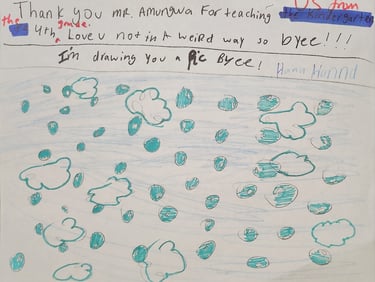 Thank you mr. Amungwa For teaching us from
the 4th grade. Love u not in a weird way so byee!!!
I'm drawing you a pic Byee!